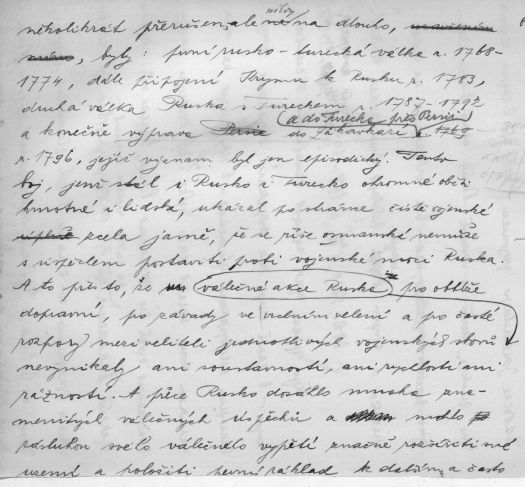 několikrát přerušen, ale ne na dlouho,
byly: první rusko-turecká válka r. 1768-
1774, dále připojení Krymu k Rusku r. 1783,
druhá válka Ruska s Tureckem r. 1787-1792
(a do Turecka přes Persii
a konečně výprava Persie do Zákavkazí r. 1769
r. 1796, jejíž význam byl jen episodický. Tento
boj, jenž stál i Rusko i Turecko ohromné oběti
hmotné i lidské, ukázal po stránce čistě vojenské
zcela jasně, že se říše osmanská nemůže
s úspěchem postaviti proti vojenské moci Ruska.
A to přes to, že válečné akce Ruska pro obtíže
dopravní, po závady ve vrchním velení a po časté
rozpory mezi veliteli jednotlivých vojenských sborů
nevynikaly ani soustavností, ani rychlostí ani
rázností. A přece Rusko dosáhlo zna-
menitých válečných úspěchů a mohlo
zásluhou svého válečného vypětí značně rozšířiti své
území a položiti pevný základ k dalšímu a často